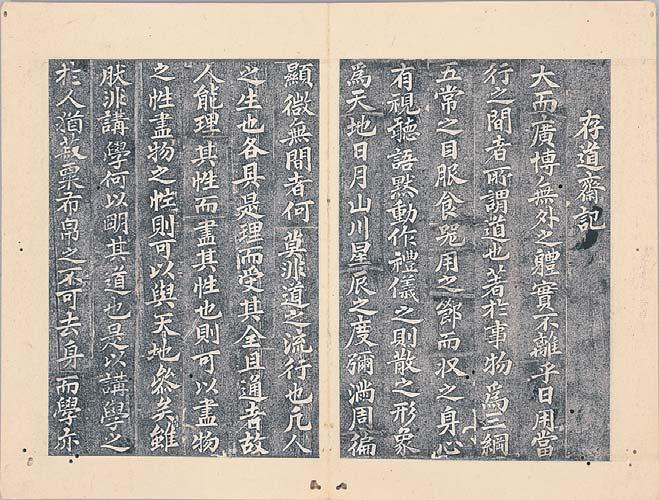 存道齋記
大而廣博無外之體實不離乎日用當
行之間者所謂道也著於事物爲三綱
五常之目服食器用之節而収之身心
有視聽語黙動作禮儀之則散之形象
爲天地日月山川星辰之度彌滿周徧
顯微無間者何莫非道之流行也凡人
之生也各具是理而受其全且通者故
人能理其性而盡其性也則可以盡物
之性盡物之性則可以與天地叅矣雖
然非講學何以明其道也是以講學之
於人猶菽粟布帛之不可去身而學亦